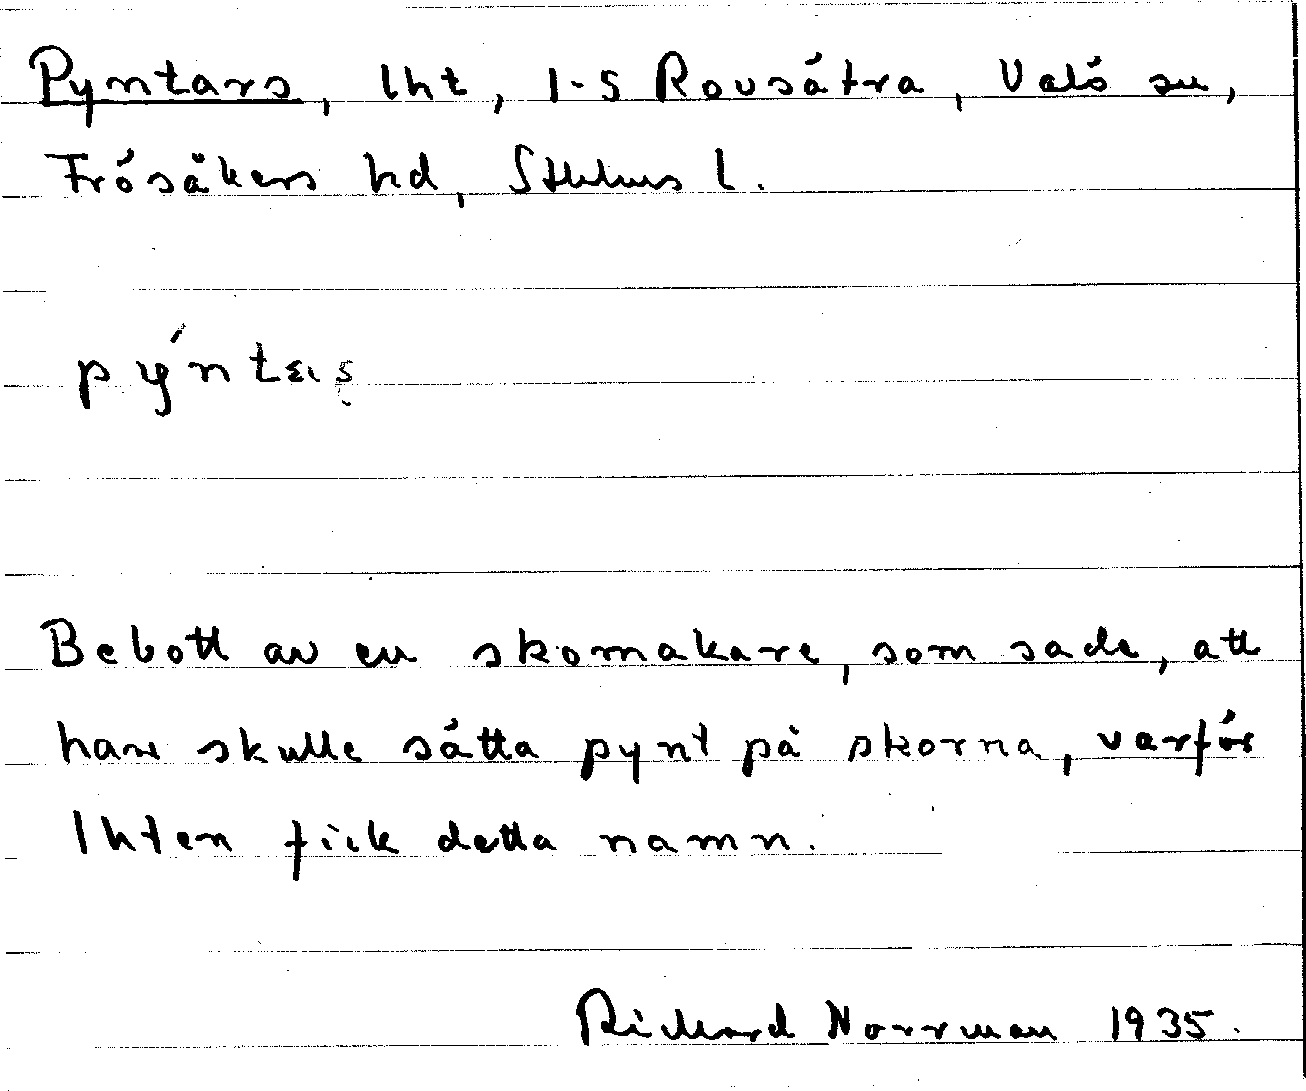 Pyntars, lht, 1-5 Rovsätra, Valö sn,
Frösåkers hd, Sthlms l.
pýntaṣ
Bebott av en skomakare, som sade, att
han skulle sätta pynt på skorna, varför
lhten fick detta namn.
Rickard Norrman 1935.